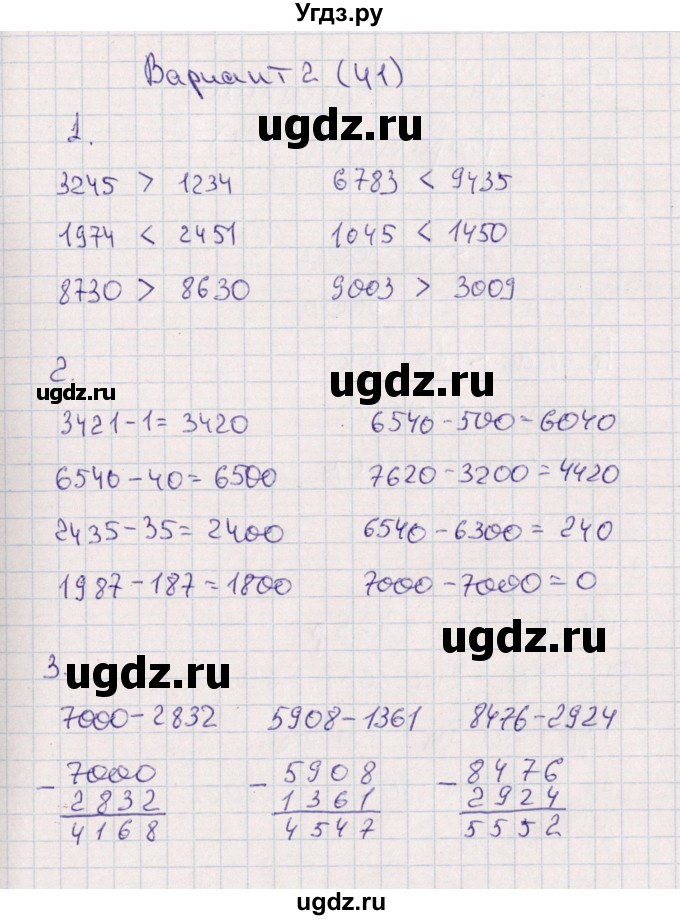 Угдз.ру
Вариант 2 (41)
ugdz.ru
1.
3245 > 1234 6783 < 9435
1974 < 2451 1045 < 1450
8730 > 8630 9003 > 3009
2.
ugdz.ru ugdz.ru
3421-1=3420 6540-500=6040
6540-40=6500 7620-3200=4420
2435-35=2400 6540-6300=240
1987-187=1800 7000-7000=0
ugdz.ru
3.
ugdz.ru
7000-2832 5908-1361 8476-2924
- 7000 - 5908 - 8476
2832 1361 2924
4168 4547 5552
ugdz.ru ugdz.ru
Угдз.ру